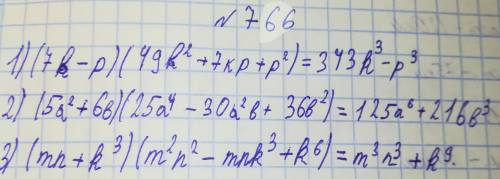 № 766
1) (7k - p)(49k² + 7кp + p²) = 343k³ - p³
2) (5a² + 6в)(25a⁴ - 30a²в + 36в²) = 125a⁶ + 216в³
3) (mn + k³)(m²n² - mnk³ + k⁶) = m³n³ + k⁹.